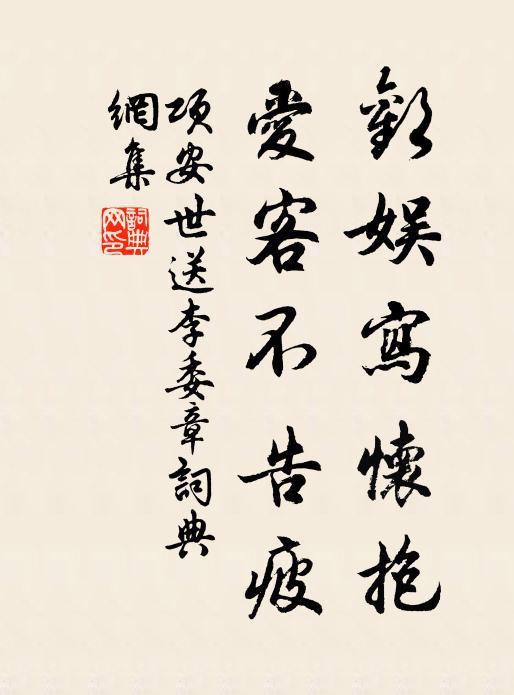 歡娛寫懷抱
愛客不告疲
項安世送李委章詞典
網集
詞典網印